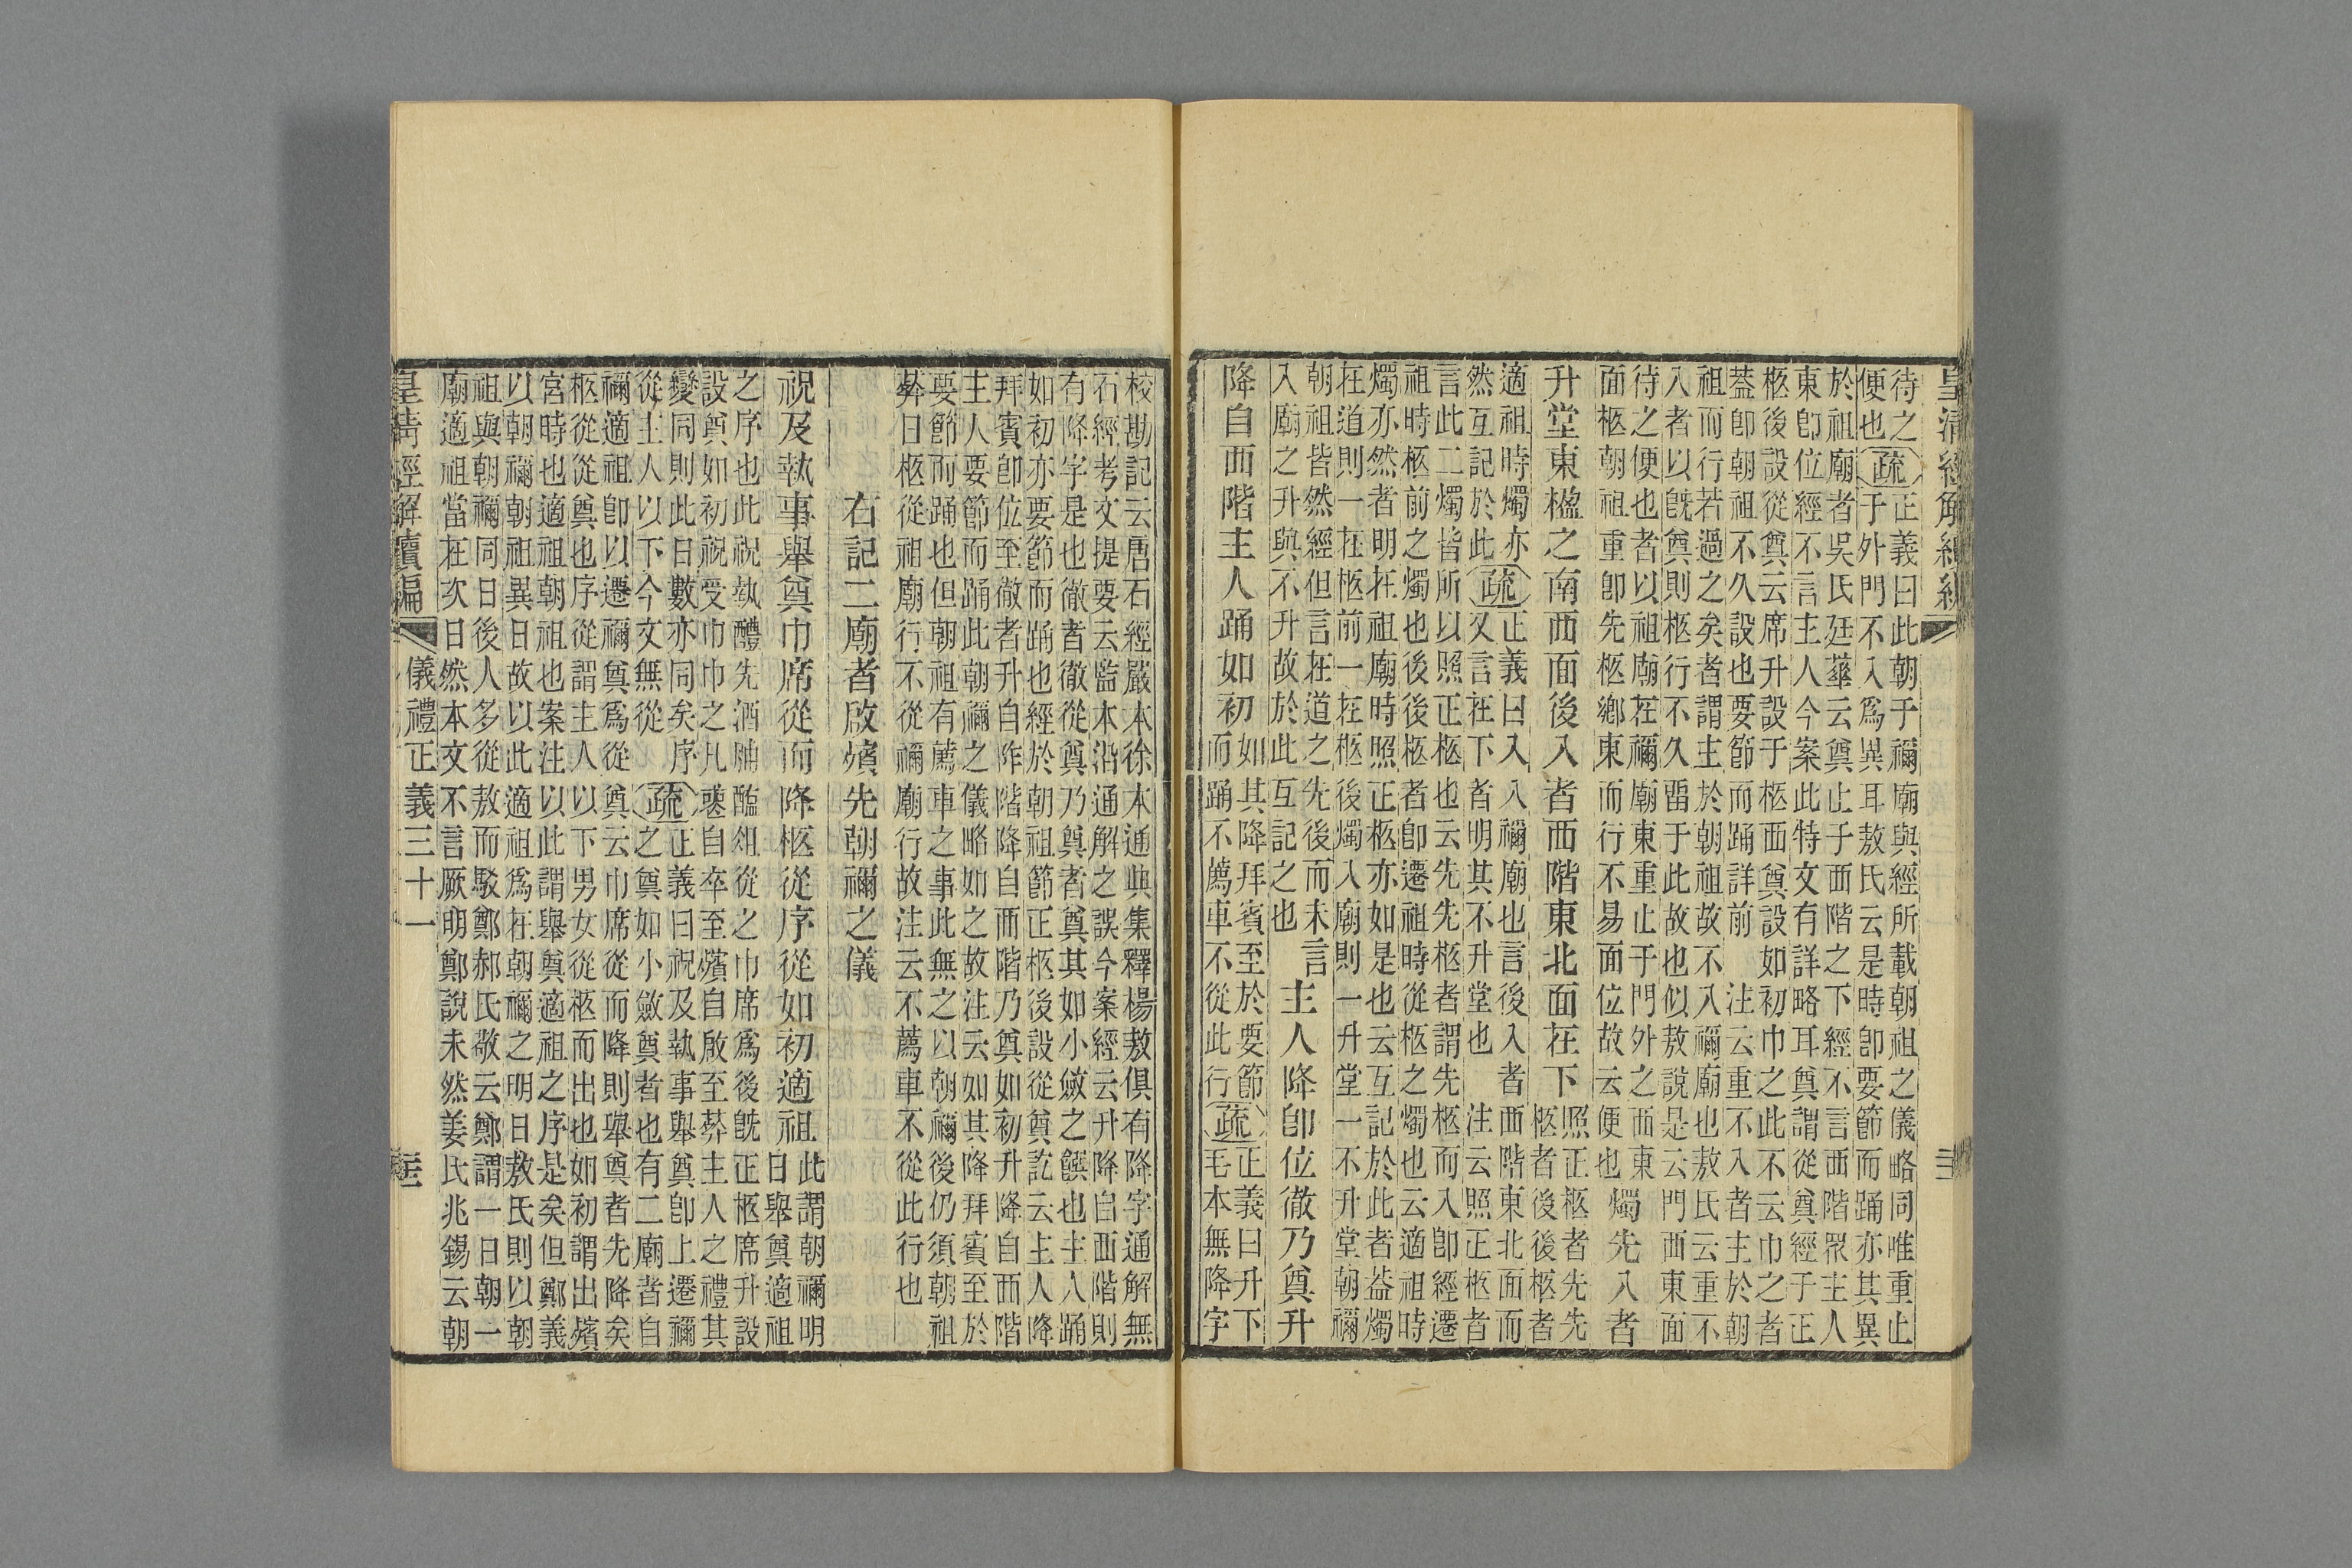 待之
便也
疏
正義曰此朝于禰廟與經所載朝祖之儀略同唯重止
于外門不入爲異耳敖氏云是時卽要節而踊亦其異
於祖廟者吳氏廷華云奠止于西階之下經不言西階眾主人
東卽位經不言主人今案此特文有詳略耳奠謂從奠經于正
柩後設從奠云席升設于柩西奠設如初巾之此不云巾之者
葢卽朝祖不久設也要節而踊詳前　注云重不入者主於朝
祖而行若過之矣者謂主於朝祖故不入禰廟也敖氏云重不
入者以旣奠則柩行不久畱于此故也似敖說是云門西東面
待之便也者以祖廟在禰廟東重止于門外之西東
面柩朝祖重卽先柩鄉東而行不易面位故云便也
燭先入者
升堂東楹之南西面後入者西階東北面在下
照正柩者先先
柩者後後柩者
適祖時燭亦
然互記於此
疏
正義曰入入禰廟也言後入者西階東北面而
又言在下者明其不升堂也　注云照正柩者
言此二燭皆所以照正柩也云先先柩者謂先柩而入卽經遷
祖時柩前之燭也後後柩者卽遷祖時從柩之燭也云適祖時
燭亦然者明在祖廟時照正柩亦如是也云互記於此者葢燭
在道則一在柩前一在柩後燭入廟則一升堂一不升堂朝禰
朝祖皆然經但言在道之先後而未言
入廟之升與不升故於此互記之也
主人降卽位徹乃奠升
降自西階主人踊如初
如其降拜賓至於要節
而踊不薦車不從此行
疏
正義曰升下
毛本無降字
校勘記云唐石經嚴本徐本通典集釋楊敖俱有降字通解無
石經考文提要云監本沿通解之誤今案經云升降自西階則
有降字是也徹者徹從奠乃奠者奠其如小斂之饌也主人踊
如初亦要節而踊也經於朝祖節正柩後設從奠訖云主人降
拜賓卽位至徹者升自阼階降自西階乃奠如初升降自西階
主人要節而踊此朝禰之儀略如之故注云如其降拜賓至於
要節而踊也但朝祖有薦車之事此無之以朝禰後仍須朝祖
葬日柩從祖廟行不從禰廟行故注云不薦車不從此行也
右記二廟者啟殯先朝禰之儀
祝及執事舉奠巾席從而降柩從序從如初適祖
此謂朝禰明
日舉奠適祖
之序也此祝執醴先酒脯醢俎從之巾席爲後旣正柩席升設
設奠如初祝受巾巾之凡喪自卒至殯自啟至葬主人之禮其
變同則此日數亦同矣序
從主人以下今文無從
疏
正義曰祝及執事舉奠卽上遷禰
之奠如小斂奠者也有二廟者自
禰適祖卽以遷禰奠爲從奠云巾席從而降則舉奠者先降矣
柩從從奠也序從謂主人以下男女從柩而出也如初謂出殯
宮時也適祖朝祖也案注以此謂舉奠適祖之序是矣但鄭義
以朝禰朝祖異日故以此適祖爲在朝禰之明日敖氏則以朝
祖與朝禰同日後人多從敖而駁鄭郝氏敬云鄭謂一日朝一
廟適祖當在次日然本文不言厥明鄭說未然姜氏兆錫云朝
皇清經解續編　儀禮正義三十一